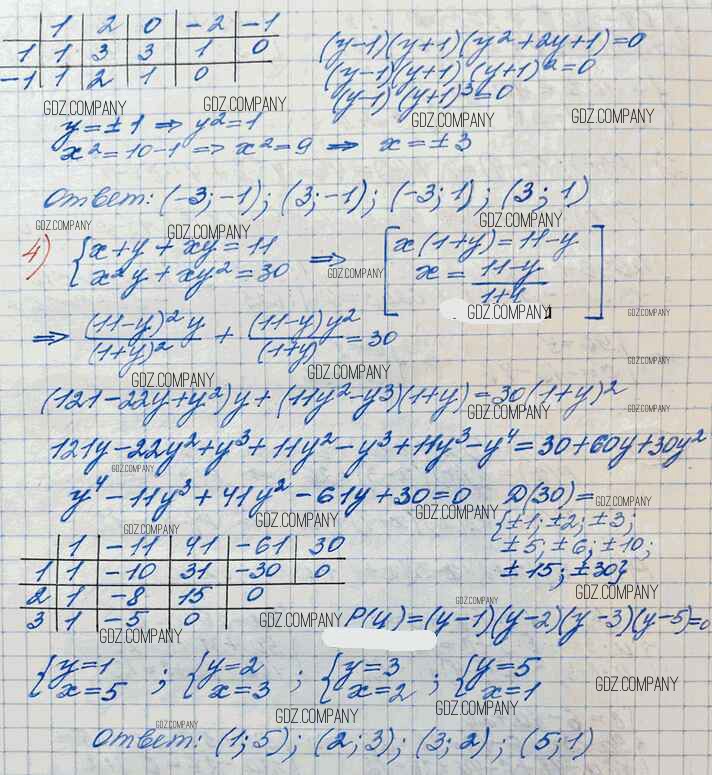 1 2 0 -2 -1
1 1 3 3 1 0
-1 1 2 1 0
(y-1)(y+1)(y²+2y+1)=0
(y-1)(y+1)(y+1)²=0
(y-1)(y+1)³=0
GDZ.COMPANY GDZ.COMPANY GDZ.COMPANY GDZ.COMPANY
y=±1 ⇒ y²=1
x²=10-1 ⇒ x²=9 ⇒ x=±3
Ответ: (-3;-1); (3;-1); (-3;1); (3;1)
GDZ.COMPANY GDZ.COMPANY GDZ.COMPANY
4) { x+y+xy=11
x²y+xy²=30 ⇒ [ x(1+y)=11-y
x = (11-y)/(1+y) ]
GDZ.COMPANY GDZ.COMPANY GDZ.COMPANY
⇒ (11-y)²y/(1+y)² + (11-y)y²/(1+y) = 30
GDZ.COMPANY GDZ.COMPANY GDZ.COMPANY
(121-22y+y²)y+(11y²-y³)(1+y)=30(1+y)²
GDZ.COMPANY GDZ.COMPANY
121y-22y²+y³+11y²-y³+11y³-y⁴=30+60y+30y²
GDZ.COMPANY
y⁴-11y³+41y²-61y+30=0
D(30)=
{±1; ±2; ±3;
±5; ±6; ±10;
±15; ±30}
GDZ.COMPANY GDZ.COMPANY GDZ.COMPANY GDZ.COMPANY
1 -11 41 -61 30
1 1 -10 31 -30 0
2 1 -8 15 0
3 1 -5 0
GDZ.COMPANY GDZ.COMPANY GDZ.COMPANY GDZ.COMPANY
P(y)=(y-1)(y-2)(y-3)(y-5)=0
{ y=1
x=5 ; { y=2
x=3 ; { y=3
x=2 ; { y=5
x=1
GDZ.COMPANY GDZ.COMPANY GDZ.COMPANY GDZ.COMPANY
Ответ: (1;5); (2;3); (3;2); (5;1)